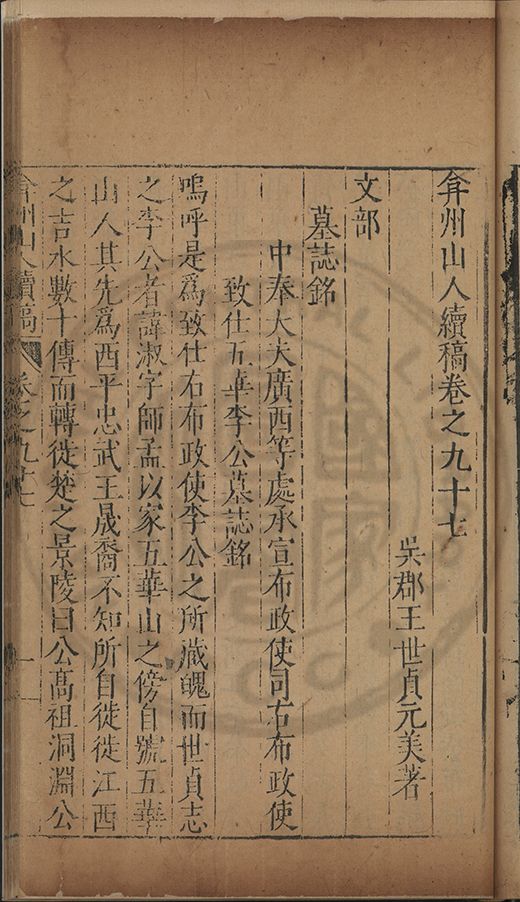 弇州山人續稿卷之九十七
吳郡王世貞元美著
文部
墓誌銘
中奉大夫廣西等處承宣布政使司右布政使
致仕五華李公墓誌銘
嗚呼是為致仕右布政使李公之所藏魄而世貞志
之李公者諱淑字師孟以家五華山之傍自號五華
山人其先為西平忠武王晟裔不知所自徙徙江西
之吉水數十傳而轉徙楚之景陵曰公高祖洞淵公
弇州山人續稿 卷之九十七 一